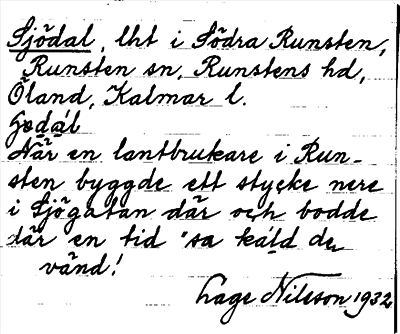 Sjödal, lht i Södra Runsten,
Runsten sn, Runstens hd,
Öland, Kalmar l.
När en lantbrukare i Run-
sten byggde ett stycke nere
i Sjögatan där och bodde
där en tid "sa
vänd!
Lage Nilsson 1932